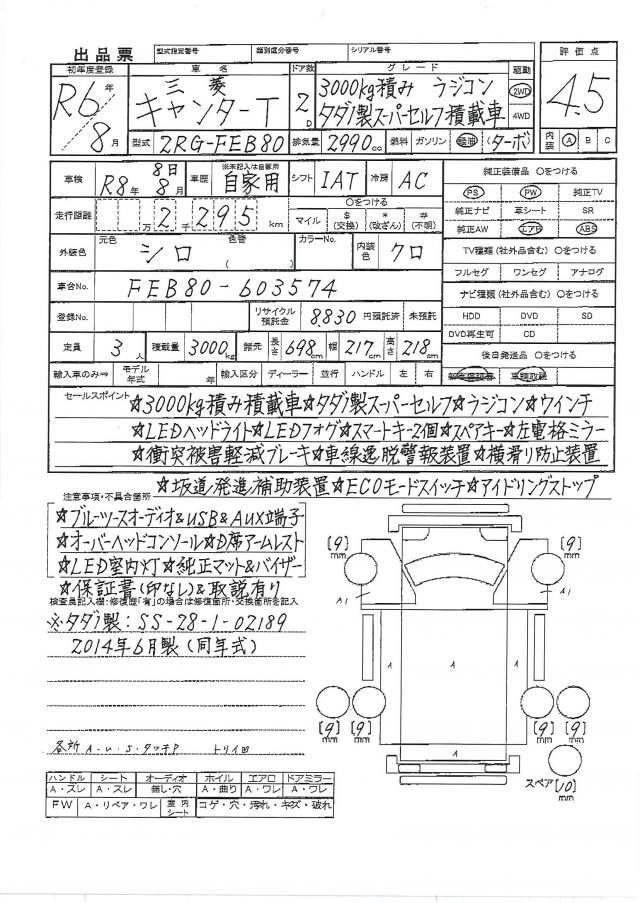 出品票 型式指定番号 類別区分番号 シリアル番号
初年度登録 車名 ドア数 グレード 駆動 評価点
R6年 三菱 2D 3000kg積み ラジコン 2WD 4.5
8月 キャンターT タダノ製スーパーセルフ積載車 4WD
型式 2RG-FEB80 排気量 2990cc 燃料 ガソリン 軽油 (ターボ) 内装 A B C
車検 R8年 8日 8月 車歴 ※未記入は自家用 自家用 シフト IAT 冷房 AC
純正装備品 〇をつける
PS PW 純正TV
純正ナビ 革シート SR
純正AW エアB ABS
走行距離 万 2千295km 〇をつける マイル $(交換) *(改ざん) #(不明)
外装色 元色 シロ 色替 ( ) カラーNo. 内装色 クロ
TV種類(社外品含む) 〇をつける
フルセグ ワンセグ アナログ
車台No. FEB80-603574
ナビ種類(社外品含む) 〇をつける
登録No. リサイクル預託金 8,830 円預託済 未預託
HDD DVD SD
DVD再生可 CD
定員 3人 積載量 3000kg 諸元 長さ 698cm 幅 217cm 高さ 218cm
後日発送品 〇をつける
輸入車のみ⇒ モデル年式 年 輸入区分 ディーラー 並行 ハンドル 左 右
新車保証書 車輌取説
セールスポイント ☆3000kg積み積載車☆タダノ製スーパーセルフ☆ラジコン☆ウインチ
☆LEDヘッドライト☆LEDフォグ☆スマートキー2個☆スペアキー☆左電格ミラー
☆衝突被害軽減ブレーキ☆車線逸脱警報装置☆横滑り防止装置
☆坂道発進補助装置☆ECOモードスイッチ☆アイドリングストップ
注意事項・不具合箇所
☆ブルーツースオーディオ&USB&AUX端子
☆オーバーヘッドコンソール☆D席アームレスト
☆LED室内灯☆純正マット&バイザー
☆保証書(印なし)&取説有り
検査員記入欄:修復歴「有」の場合は修復箇所・交換箇所を記入
※タダノ製:SS-28-1-02189
2014年6月製(同年式)
各所 A-U・S・タッチP トリイ凹
[9]mm [9]mm
A1 A1
A A A
A
[9]mm [9]mm [9]mm [9]mm
スペア [10]mm
ハンドル シート オーディオ ホイル エアロ ドアミラー
A・スレ A・スレ 無し・穴 A・曲り A・ワレ A・ワレ
FW A・リペア・ワレ 室内シート コゲ・穴・汚れ・キズ・破れ